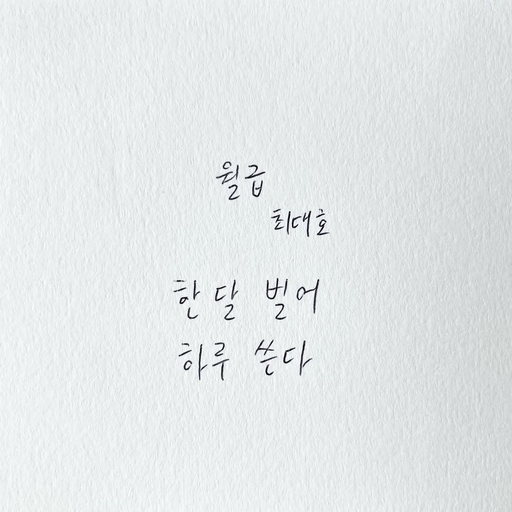 월급
최대호
한 달 벌어
하루 쓴다